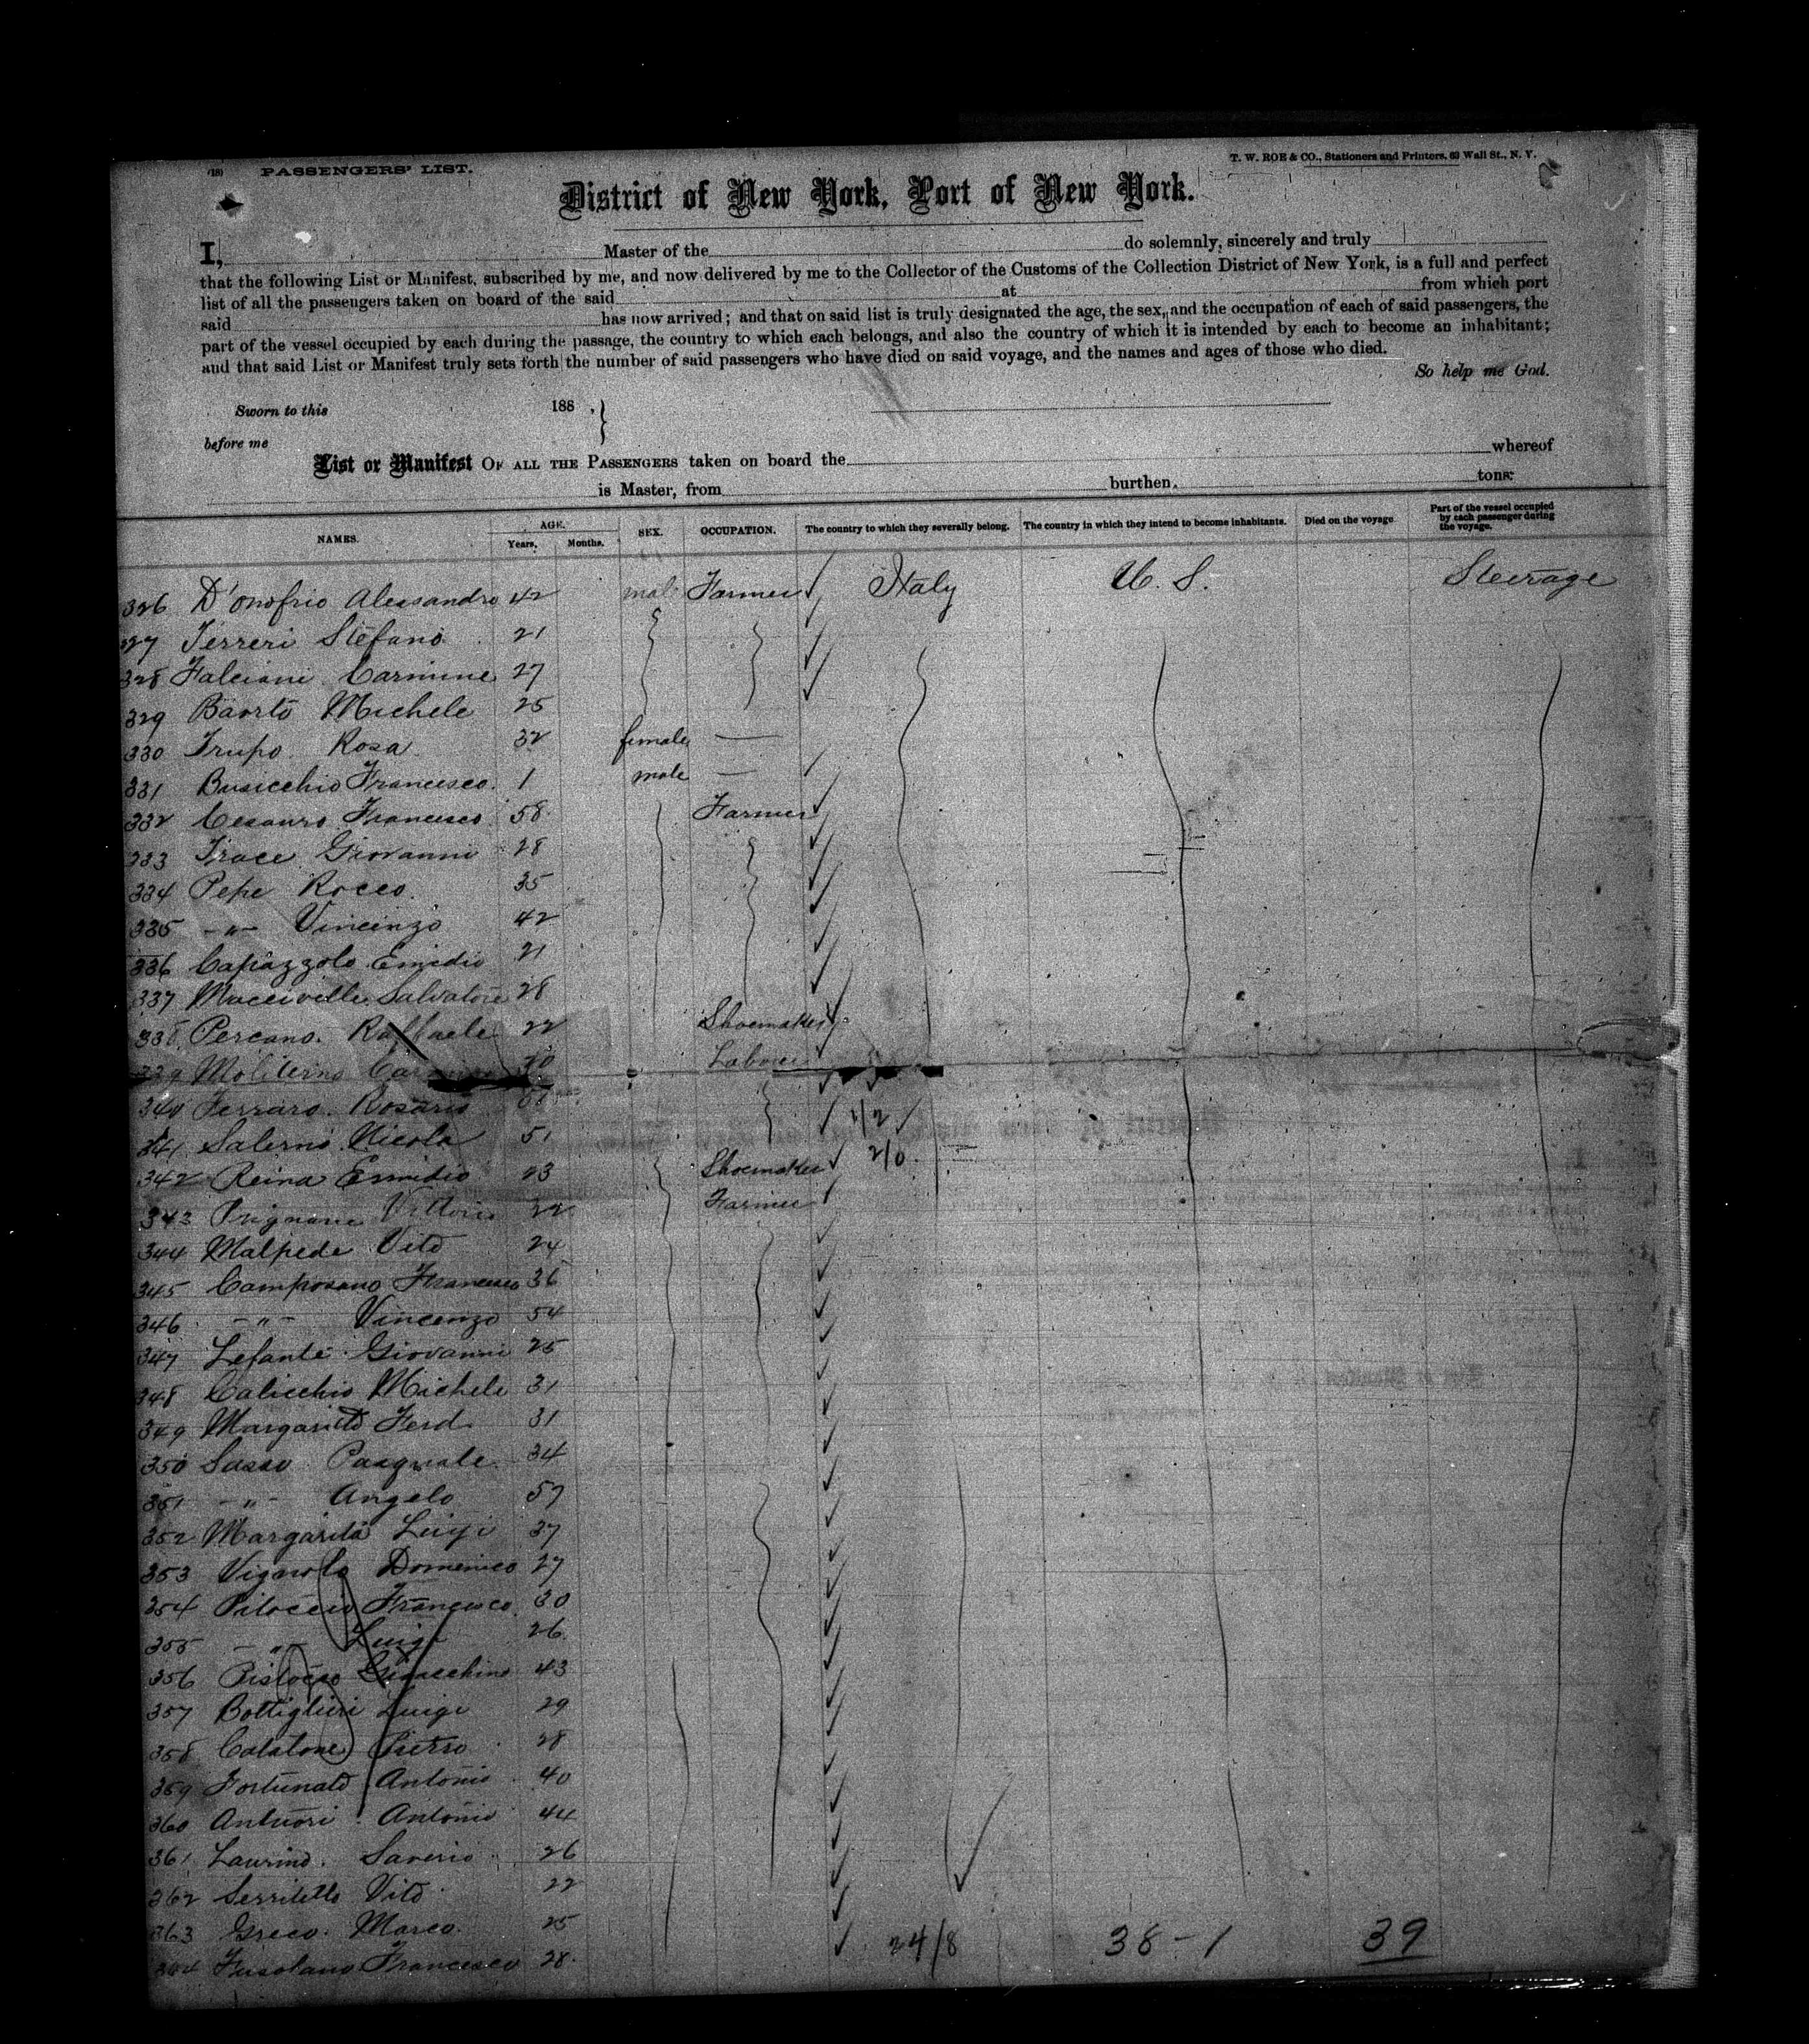 (18) PASSENGERS' LIST.
T. W. ROE & CO., Stationers and Printers, 63 Wall St., N. Y.
District of New York, Port of New York.
I, Master of the do solemnly, sincerely and truly
that the following List or Manifest, subscribed by me, and now delivered by me to the Collector of the Customs of the Collection District of New York, is a full and perfect
list of all the passengers taken on board of the said at from which port
said has now arrived; and that on said list is truly designated the age, the sex, and the occupation of each of said passengers, the
part of the vessel occupied by each during the passage, the country to which each belongs, and also the country of which it is intended by each to become an inhabitant;
and that said List or Manifest truly sets forth the number of said passengers who have died on said voyage, and the names and ages of those who died.
So help me God.
Sworn to this 188 ,
before me
List or Manifest OF ALL THE PASSENGERS taken on board the whereof
is Master, from burthen, tons:
NAMES. AGE. Years. Months. SEX. OCCUPATION. The country to which they severally belong. The country in which they intend to become inhabitants. Died on the voyage. Part of the vessel occupied by each passenger during the voyage.
326 D'onofrio Alessandro 42 male Farmer Italy U. S. Steerage
327 Ferreri Stefano 21
328 Falciani Carmine 27
329 Michele 25
330 Trupo Rosa 32 female —
331 Busicchio Francesco 1 male —
332 Cesauro Francesco 58 Farmer
333 Trace Giovanni 28
334 Pepe Rocco 35
335 -"- Vincenzo 42
336 Capazzolo Emidio 21
337 Salvatore 28
338 Percano Raffaele 22 Shoemaker
339 Moliterno Laborer
340 Ferraro Rosario 1/2
341 Salerno Nicola 51 2/0
342 Reina Emidio 23 Shoemaker
343 Prignano Vittorio 22 Farmer
344 Malpede Vito 24
345 Camposano Francesco 36
346 -"- Vincenzo 54
347 Lefante Giovanni 25
348 Calicchio Michele 31
349 Margarita Ferd. 31
350 Sasso Pasquale 34
351 -"- Angelo 57
352 Margarita Luigi 37
353 Vigarola Domenico 27
354 Pitoccio Francesco 30
355 -"- Luigi 26
356 Gioacchino 43
357 Bottiglieri Luigi 29
358 Calatone Pietro 28
359 Fortunato Antonio 40
360 Antuori Antonio 44
361 Laurino Saverio 26
362 Serritello Vito 22
363 Greco Marco 25
364 Fusolano Francesco 28 34/8 38-1 39